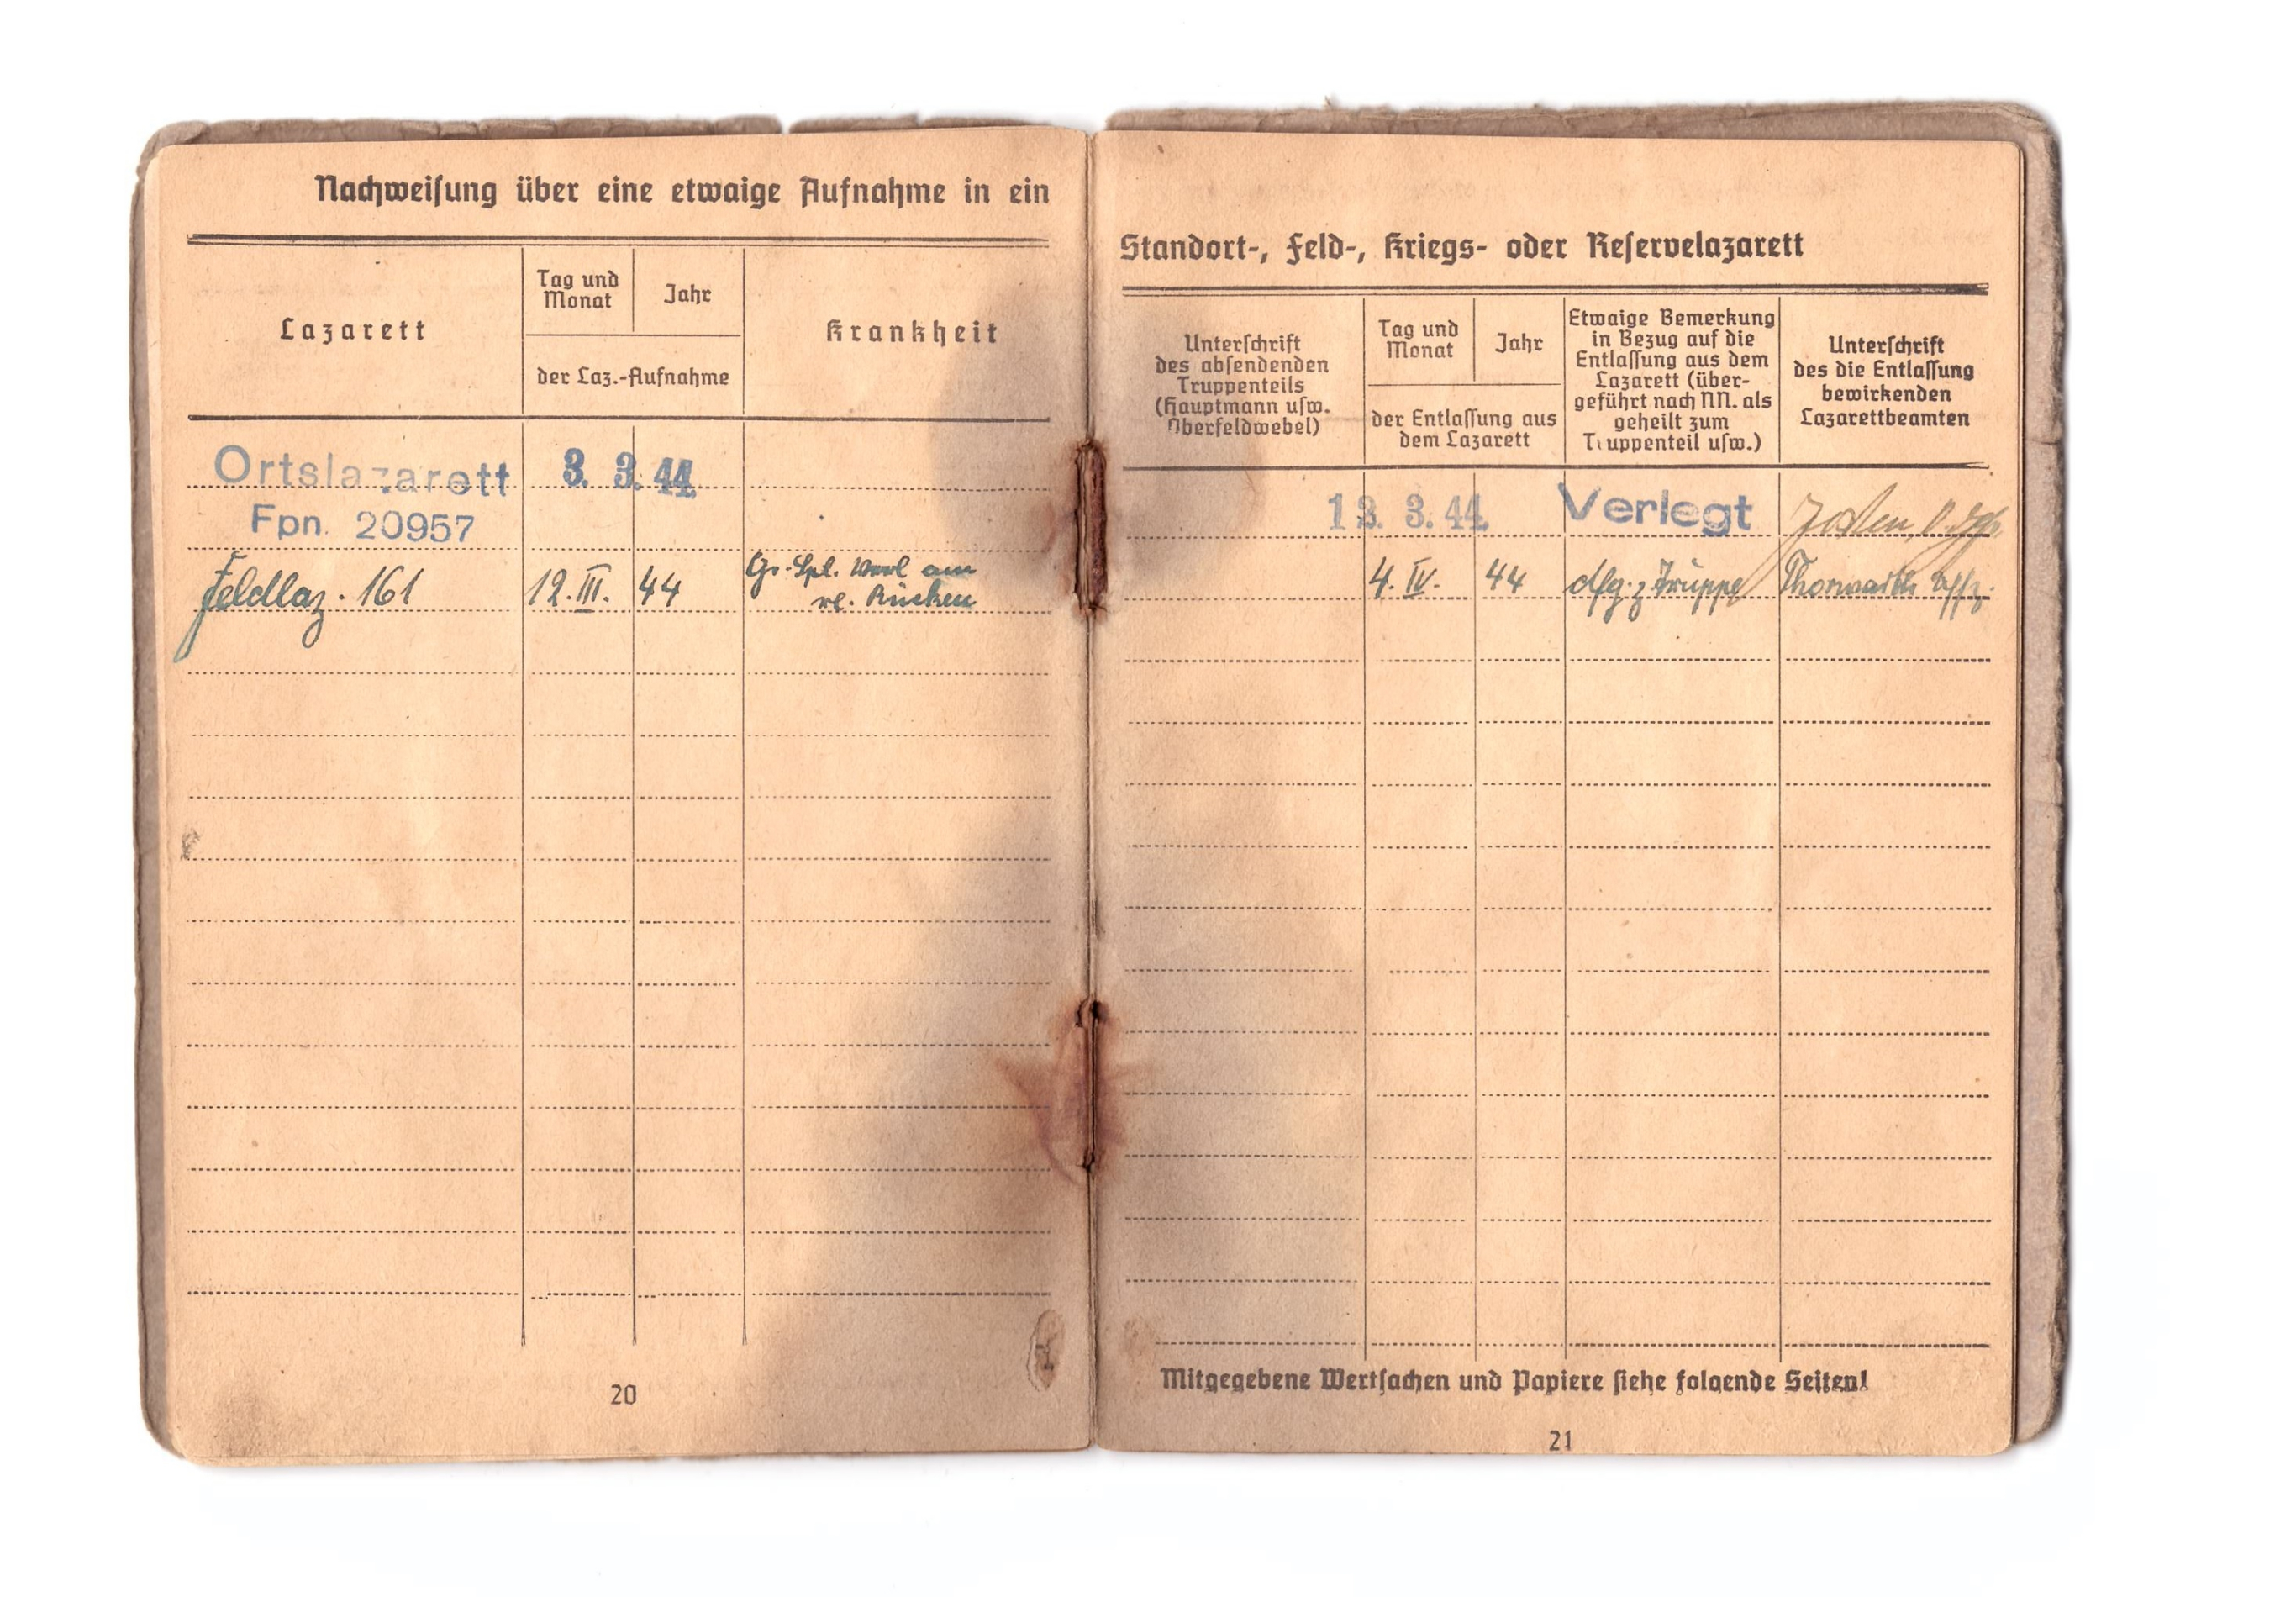 Nachweisung über eine etwaige Aufnahme in ein
Lazarett
Tag und
Monat
Jahr
der Laz.-Aufnahme
Krankheit
Ortslazarett
3. 3. 44.
Fpn. 20957
Feldlaz. 161
12. III.
44
Gr. Spl. Verl am
re. Rücken
20
Standort-, Feld-, Kriegs- oder Reservelazarett
Unterschrift
des absendenden
Truppenteils
(Hauptmann usw.
Oberfeldwebel)
Tag und
Monat
Jahr
der Entlassung aus
dem Lazarett
Etwaige Bemerkung
in Bezug auf die
Entlassung aus dem
Lazarett (über-
geführt nach NN. als
geheilt zum
Truppenteil usw.)
Unterschrift
des die Entlassung
bewirkenden
Lazarettbeamten
13. 3. 44.
Verlegt
4. IV.
44
dfg. z Truppe
Uffz.
Mitgegebene Wertsachen und Papiere siehe folgende Seiten!
21